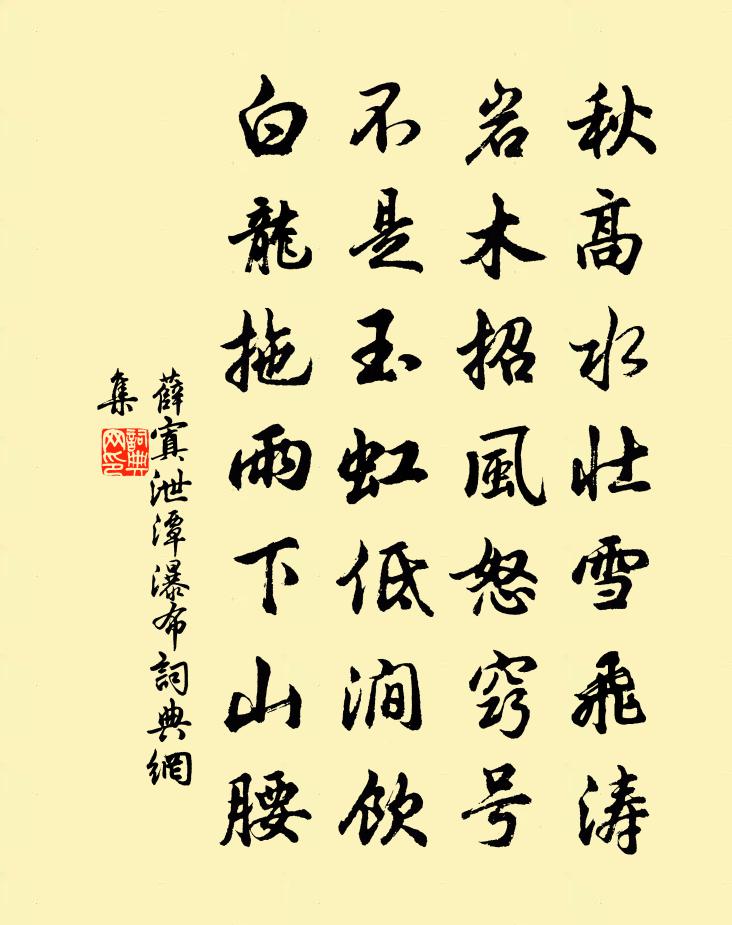 秋高水壮雪飛涛
岩木招風怒窍号
不是玉虹低澗飲
白龍拖雨下山腰
薛寘泄潭瀑布詞典網
集
詞典
网印